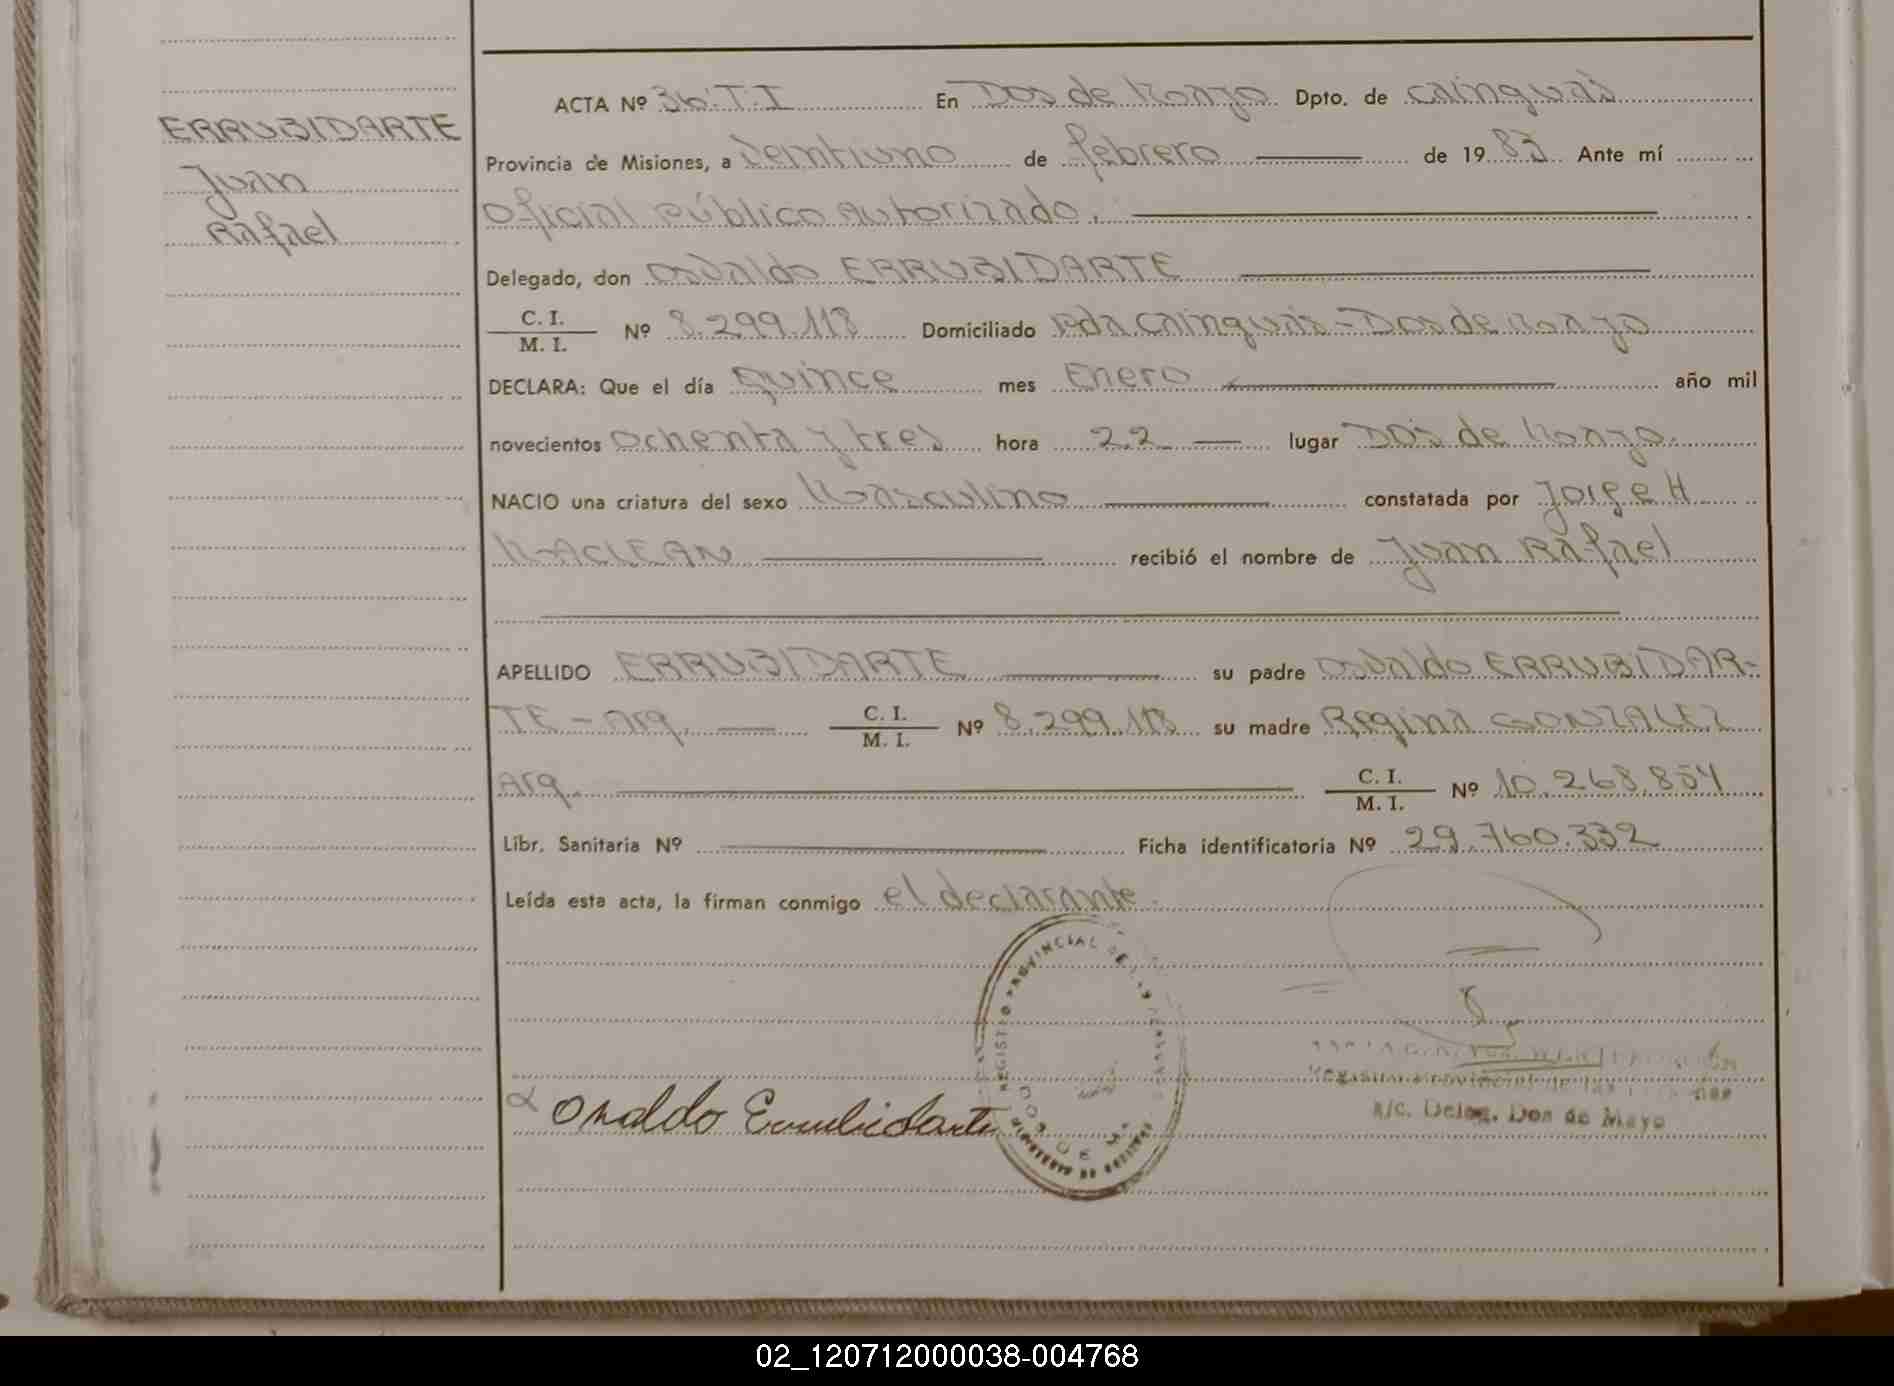 ERRUBIDARTE
Juan
Rafael
ACTA Nº 36.T.I En Dos de Mayo Dpto. de Cainguás
Provincia de Misiones, a Veintiuno de febrero de 1983 Ante mí
Oficial Público Autorizado.
Delegado, don Osvaldo ERRUBIDARTE
C. I.
M. I. Nº 8.299.118 Domiciliado Pda. Cainguás - Dos de Mayo
DECLARA: Que el día quince mes Enero año mil
novecientos Ochenta y tres hora 22 lugar Dos de Mayo.
NACIO una criatura del sexo Masculino constatada por Jorge H
MACLEAN recibió el nombre de Juan Rafael
APELLIDO ERRUBIDARTE su padre Osvaldo ERRUBIDAR-
TE - Arg. C. I.
M. I. Nº 8.299.118 su madre Regina GONZALEZ
Arg. C. I.
M. I. Nº 10.268.854
Libr. Sanitaria Nº Ficha identificatoria Nº 29.760.332
Leída esta acta, la firman conmigo el declarante.
REGISTRO PROVINCIAL DE
DOS DE
Osvaldo Errubidarte
Registro Provincial de las
a/c. Deleg. Dos de Mayo
02_120712000038-004768